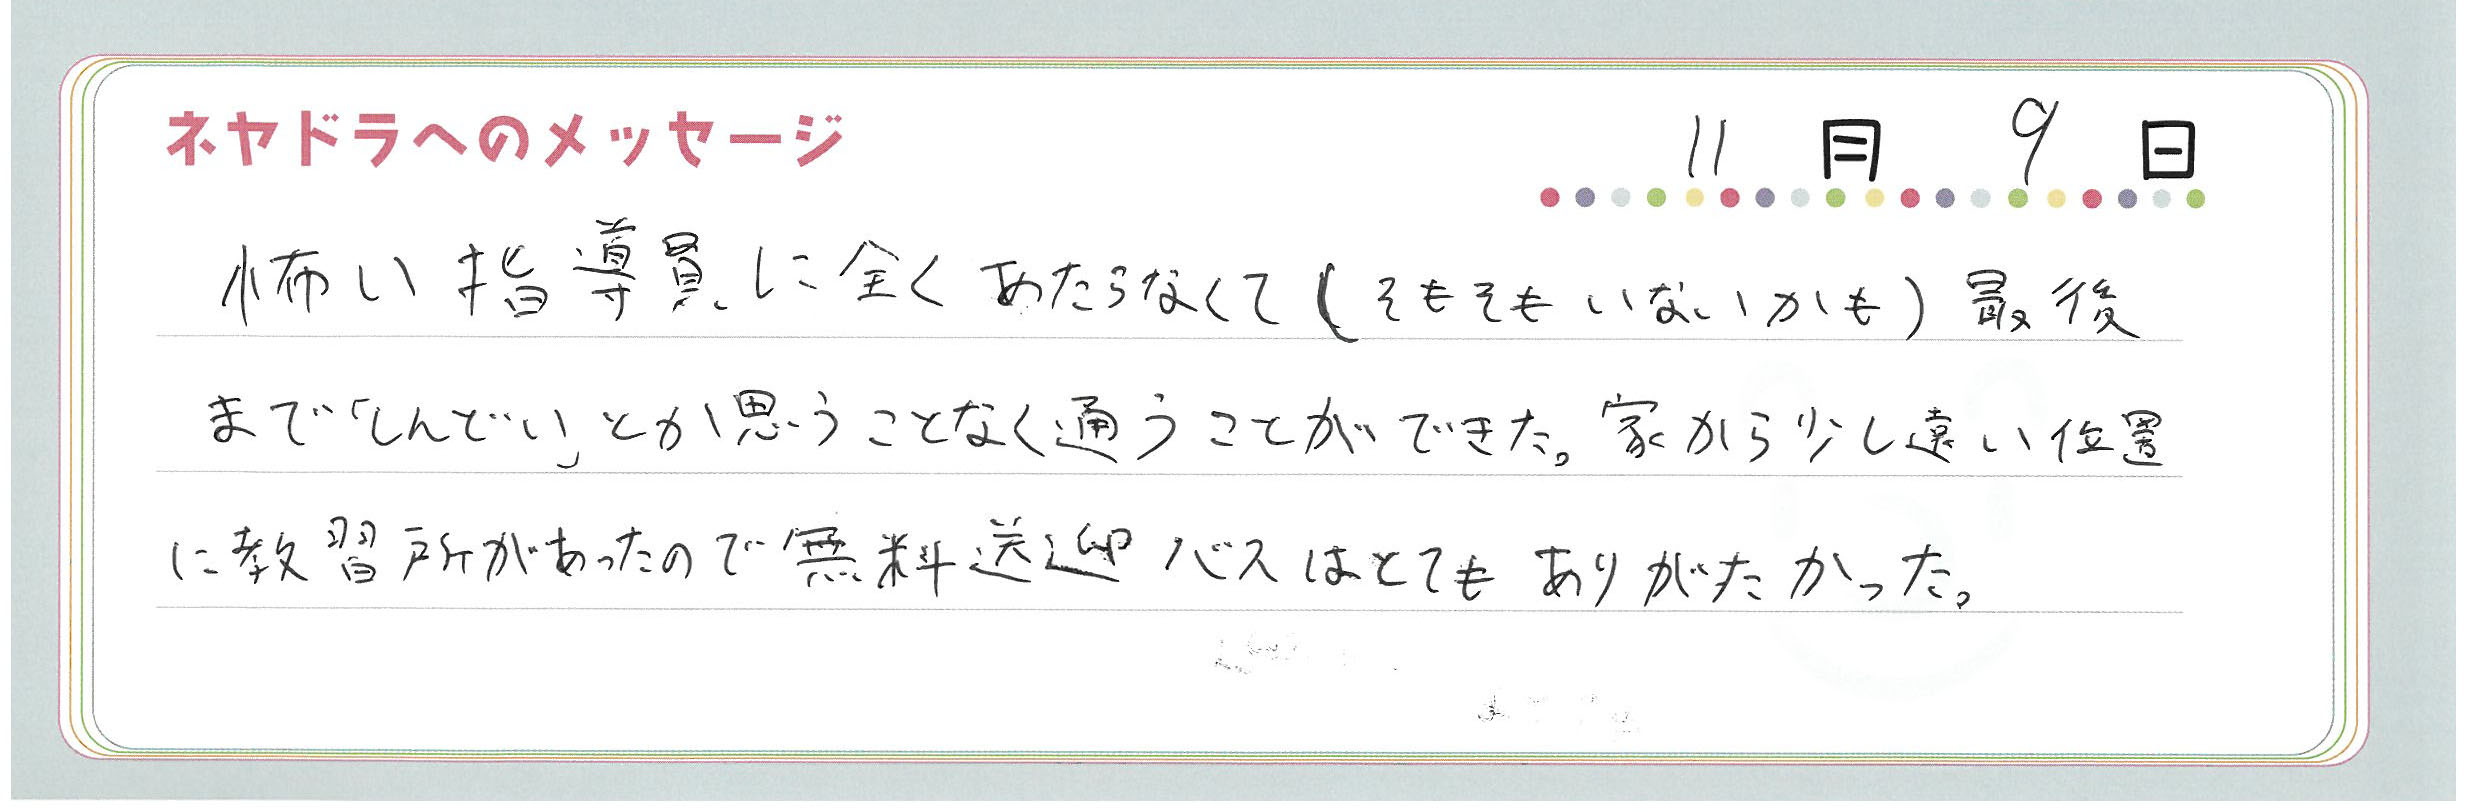 ネヤドラへのメッセージ
11月9日
怖い指導員に全くあたらなくて(そもそもいないかも)最後
まで「しんどい」とか思うことなく通うことができた。家から少し遠い位置
に教習所があったので無料送迎バスはとてもありがたかった。